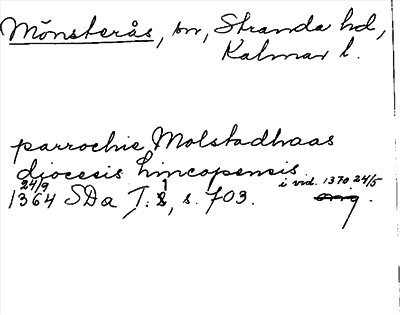 Mönsterås, sn, Stranda hd,
Kalmar l.
parrochie Molstadhaas
dyocesis Lincopensis
24/9 i vid. 1370 24/5
1364 SDa T. 8, 1, s. 703. orig.